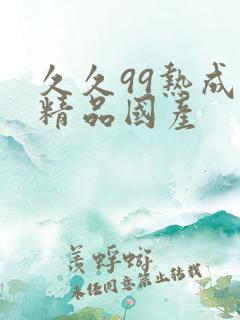 久久99熟成
精品國産
羨蜉蝣
未经同意禁止转载